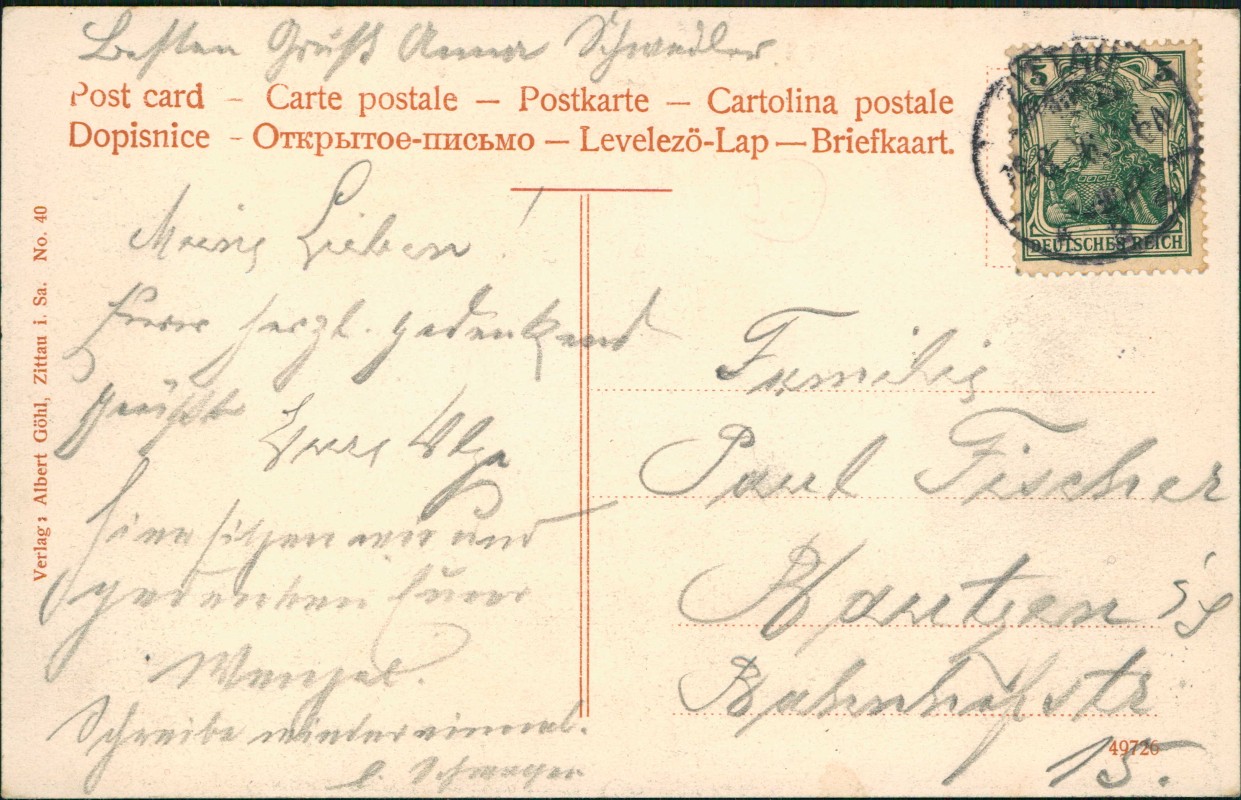 Besten Gruß Anna Schwedler.
Post card – Carte postale – Postkarte – Cartolina postale
Dopisnice – Открытое-письмо – Levelezö-Lap – Briefkaart.
Meine Lieben!
Eurer herzl. gedenkend
grüßt
Hier sitzen wir und
gedenken Eurer
Wenzel.
Schreibe wieder einmal.
l. Schwager
Verlag: Albert Göhl, Zittau i. Sa. No. 40
5 5
DEUTSCHES REICH
ZITTAU
Familie
Paul Fischer
Bautzen
Bahnhofstr
15.
49726